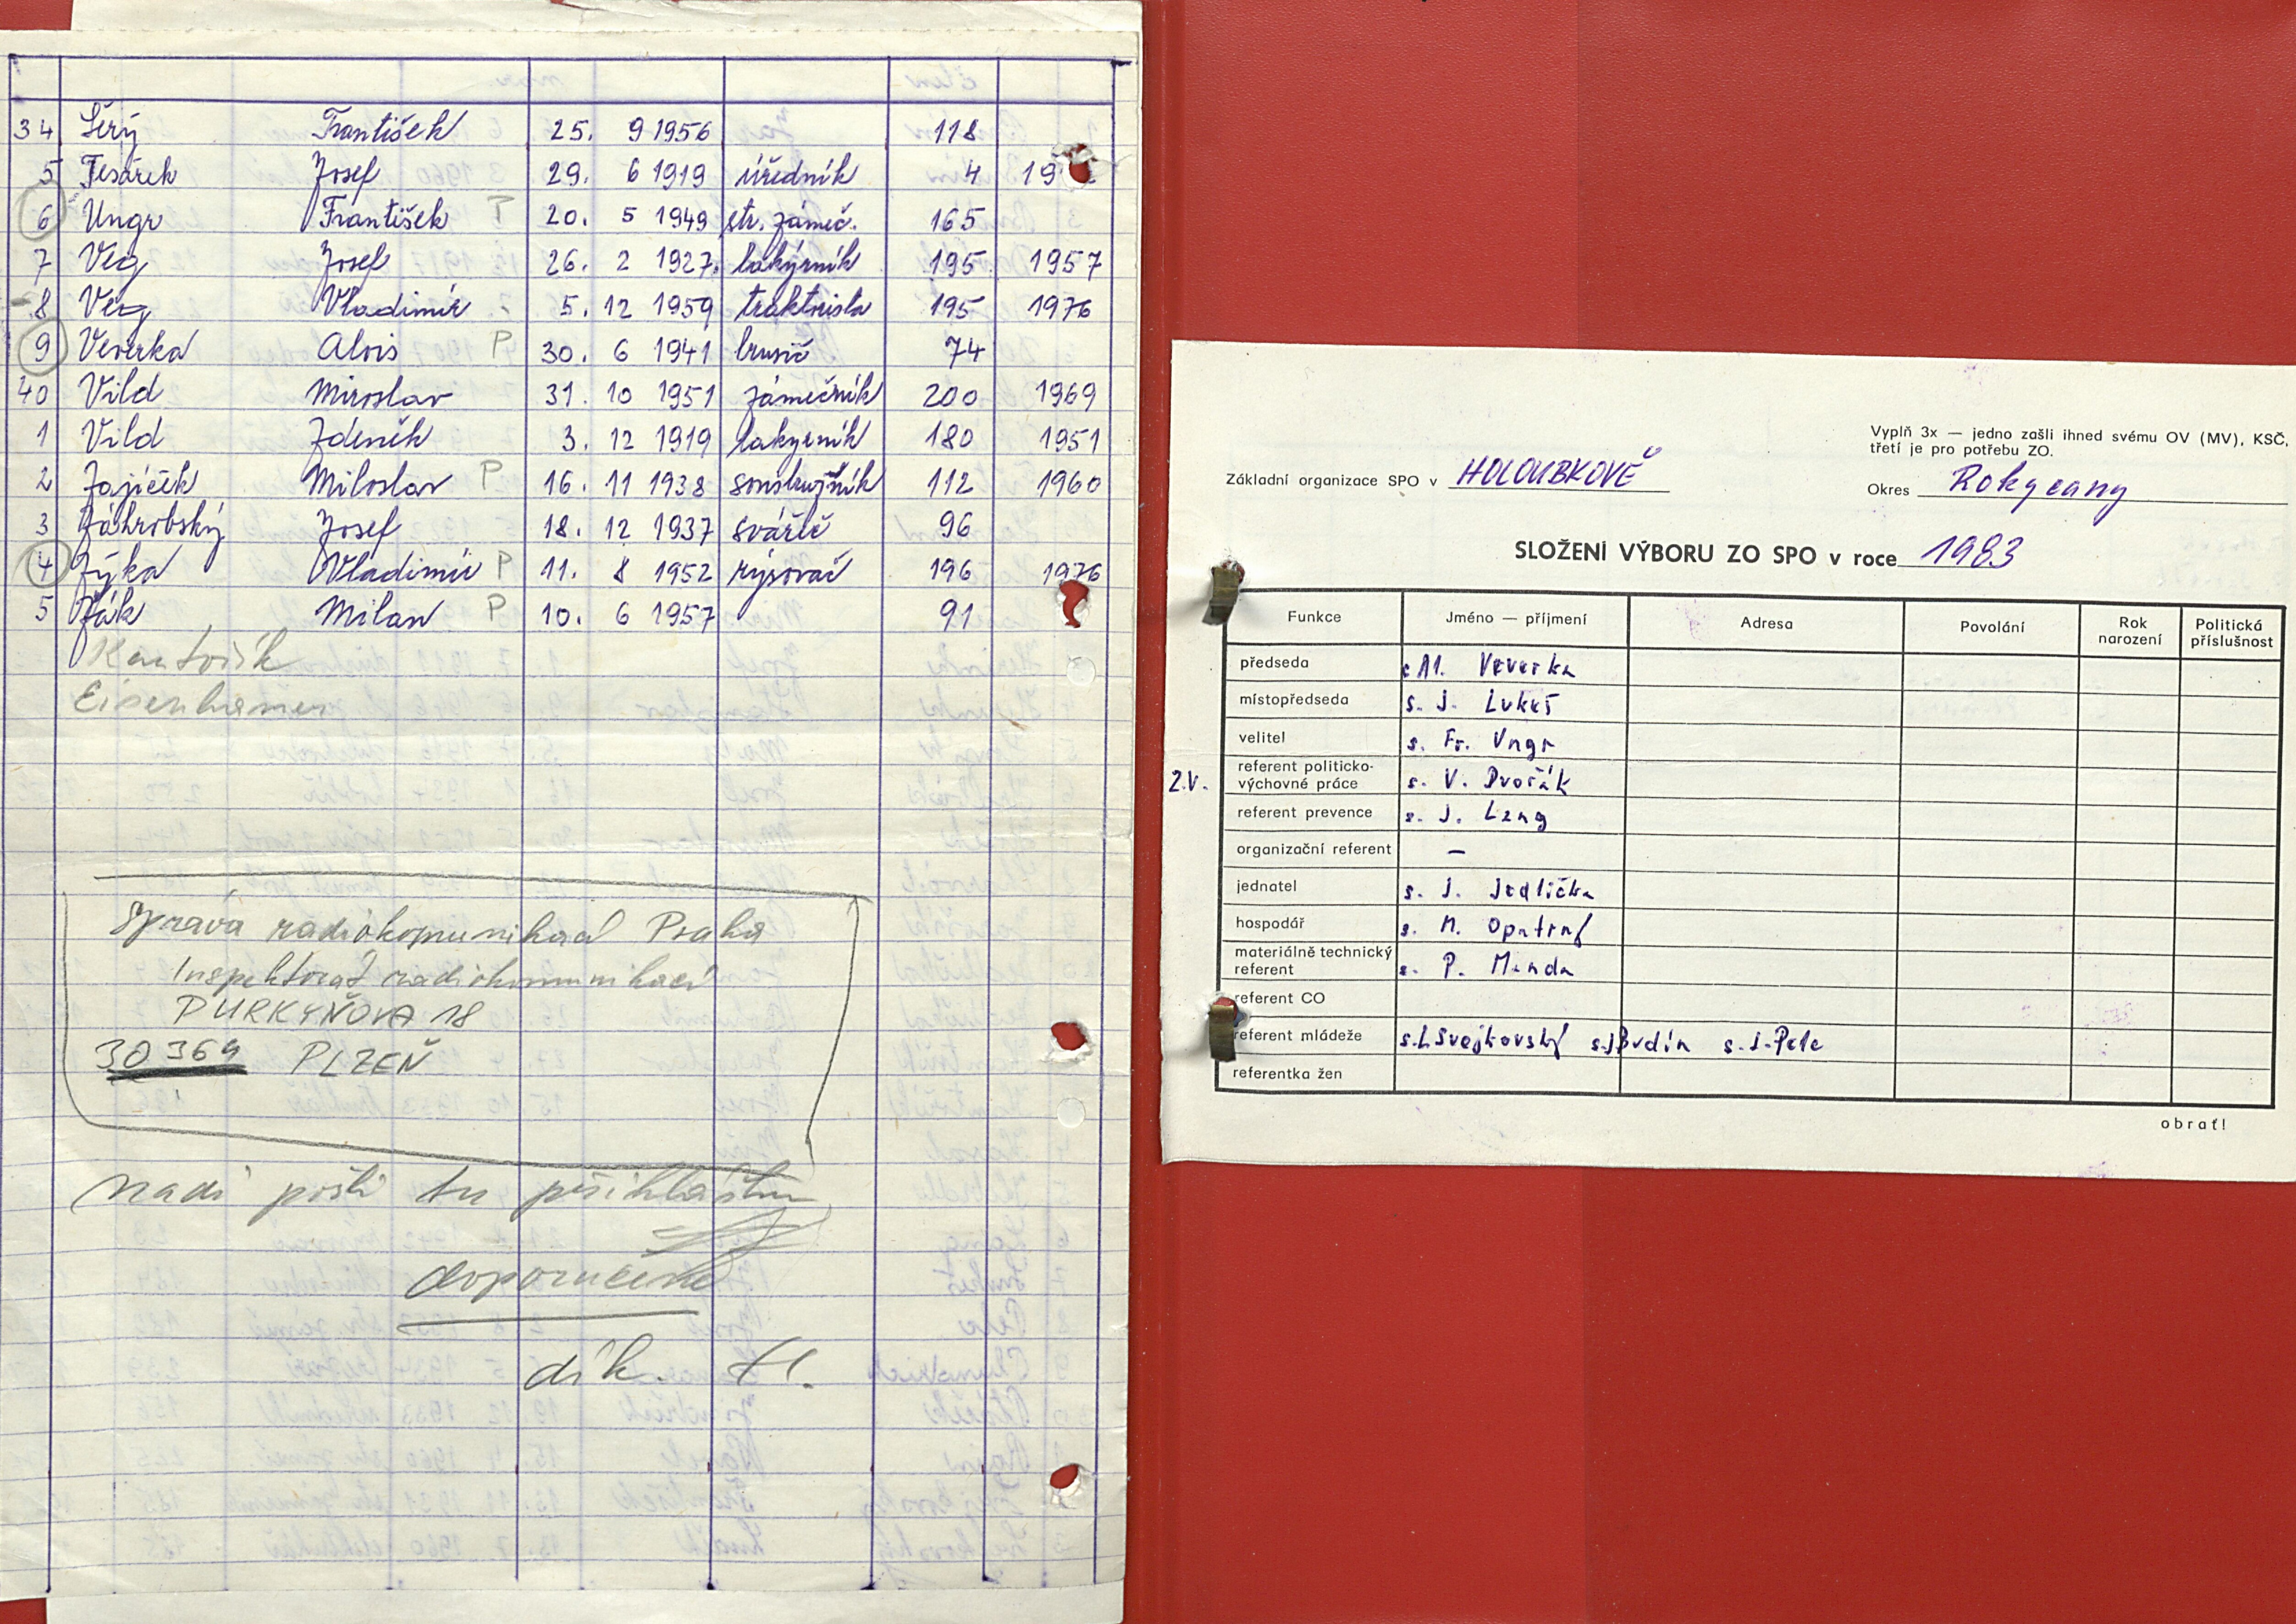 34 Šerý František 25. 9 1956 118
5 Tesárek Josef 29. 6 1919 úředník 4
6 Ungr František P 20. 5 1949 str. zámeč. 165
7 Veg Josef 26. 2 1927. lakýrník 195. 1957
8 Veg Vladimír 5. 12 1959 traktorista 195 1976
9 Veverka Alois P 30. 6 1941 brusič 74
40 Vild Miroslav 31. 10 1951 zámečník 200 1969
1 Vild Zdeněk 3. 12 1919 lakyrník 180 1951
2 Zajíček Miloslav P 16. 11 1938 soustružník 112 1960
3 Záhrobský Josef 18. 12 1937 svářeč 96
4 Zýka Vladimír P 11. 8 1952 rýsovač 196 1976
5 Žák Milan P 10. 6 1957 91
Kantořík
Eisenhamer
Správa radiokomunikací Praha
Inspektorat radiokomunikací
PURKYŇOVA 18
30369 PLZEŇ
pošli tu přihlášku
doporučeně
dík.
Vyplň 3x — jedno zašli ihned svému OV (MV), KSČ,
třetí je pro potřebu ZO.
Základní organizace SPO v HOLOUBKOVĚ
Okres Rokycany
SLOŽENÍ VÝBORU ZO SPO v roce 1983
Funkce Jméno — příjmení Adresa Povolání Rok narození Politická příslušnost
předseda s Al. Veverka
místopředseda s. J. Lukeš
velitel s. Fr. Ungr
2.V. referent politicko-
výchovné práce s. V. Dvořák
referent prevence s. J. Lang
organizační referent —
jednatel s. J. Jedlička
hospodář s. M. Opatrný
materiálně technický
referent s. P. Minda
referent CO
referent mládeže s. L Svejkovský s. J Budín s. J. Pele
referentka žen
obrať!